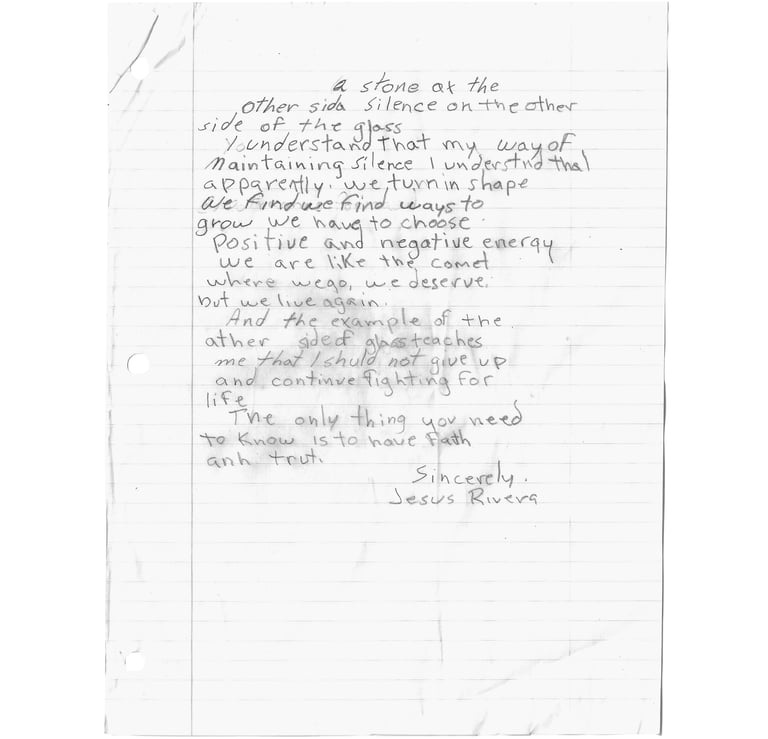 a stone at the
other sida silence on the other
side of the glass
Y understand that my way of
Maintaining Silence I understnd that
apparently. we turn in shape
We find we find ways to
grow we have to choose.
Positive and negative energy
we are like the comet
where we go, we deserve.
but we live again.
And the example of the
ather side of glass teaches
me that I shuld not give up
and continue fighting for
life
The only thing you need
to know is to have fath
anh trut.
Sincerely.
Jesus Rivera